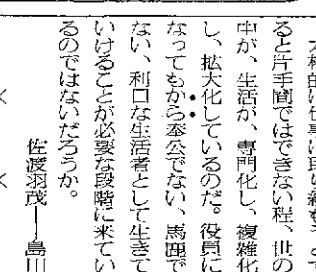 本格的に仕事に取り組もうとす
ると片手間ではできない程、世の
中が、生活が、専門化し、複雑化
し、拡大化しているのだ。役員に
なってもから奉公でない、馬鹿で
ない、利口な生活者として生きて
いけることが必要な段階に来てい
るのではないだろうか。
佐渡羽茂——島川